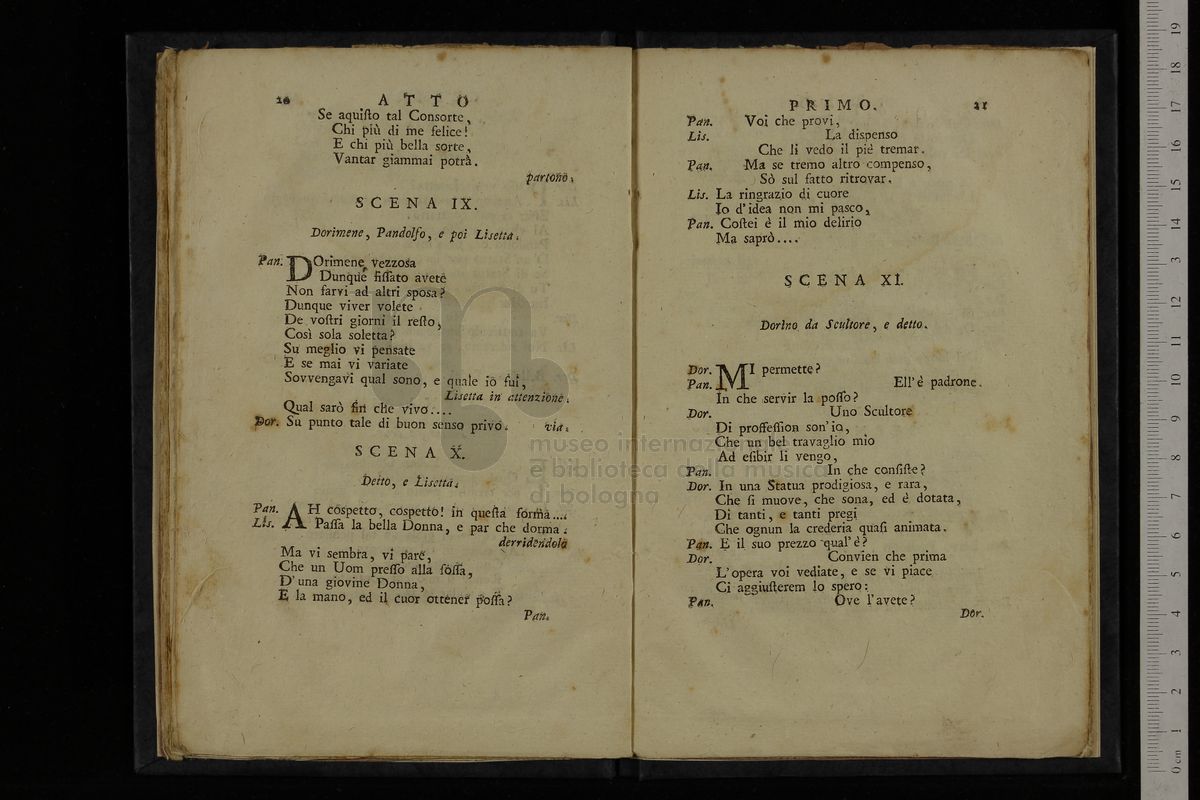 20 ATTO
Se aquiſto tal Conſorte,
Chi più di me felice!
E chi più bella sorte,
Vantar giammai potrà.
partono.
SCENA IX.
Dorimene, Pandolfo, e poi Lisetta.
Pan. DOrimene vezzosa
Dunque fiſſato avete
Non farvi ad altri sposa?
Dunque viver volete
De voſtri giorni il reſto,
Così sola soletta?
Su meglio vi pensate
E se mai vi variate
Sovvengavi qual sono, e quale io fui,
Lisetta in attenzione.
Qual sarò fin che vivo....
Dor. Su punto tale di buon senso privo. via.
SCENA X.
Detto, e Lisetta.
Pan. AH cospetto, cospetto! in queſta forma....
Lis. Paſſa la bella Donna, e par che dorma.
derridendolo
Ma vi sembra, vi pare,
Che un Uom preſſo alla foſſa,
D'una giovine Donna,
E la mano, ed il cuor ottener poſſa?
Pan.
PRIMO. 21
Pan. Voi che provi,
Lis. La dispenso
Che li vedo il piè tremar.
Pan. Ma se tremo altro compenso,
Sò sul fatto ritrovar.
Lis. La ringrazio di cuore
Io d'idea non mi pasco,
Pan. Coſtei è il mio delirio
Ma saprò....
SCENA XI.
Dorino da Scultore, e detto.
Dor. MI permette?
Pan. Ell'è padrone.
In che servir la poſſo?
Dor. Uno Scultore
Di proffeſſion son'io,
Che un bel travaglio mio
Ad eſibir li vengo,
Pan. In che conſiſte?
Dor. In una Statua prodigiosa, e rara,
Che ſi muove, che sona, ed è dotata,
Di tanti, e tanti pregi
Che ognun la crederia quaſi animata.
Pan. E il suo prezzo qual'è?
Dor. Convien che prima
L'opera voi vediate, e se vi piace
Ci aggiuſterem lo spero:
Pan. Ove l'avete?
Dor.
museo internazionale
e biblioteca della musica
di bologna
0 cm 1 2 3 4 5 6 7 8 9 10 11 12 13 14 15 16 17 18 19